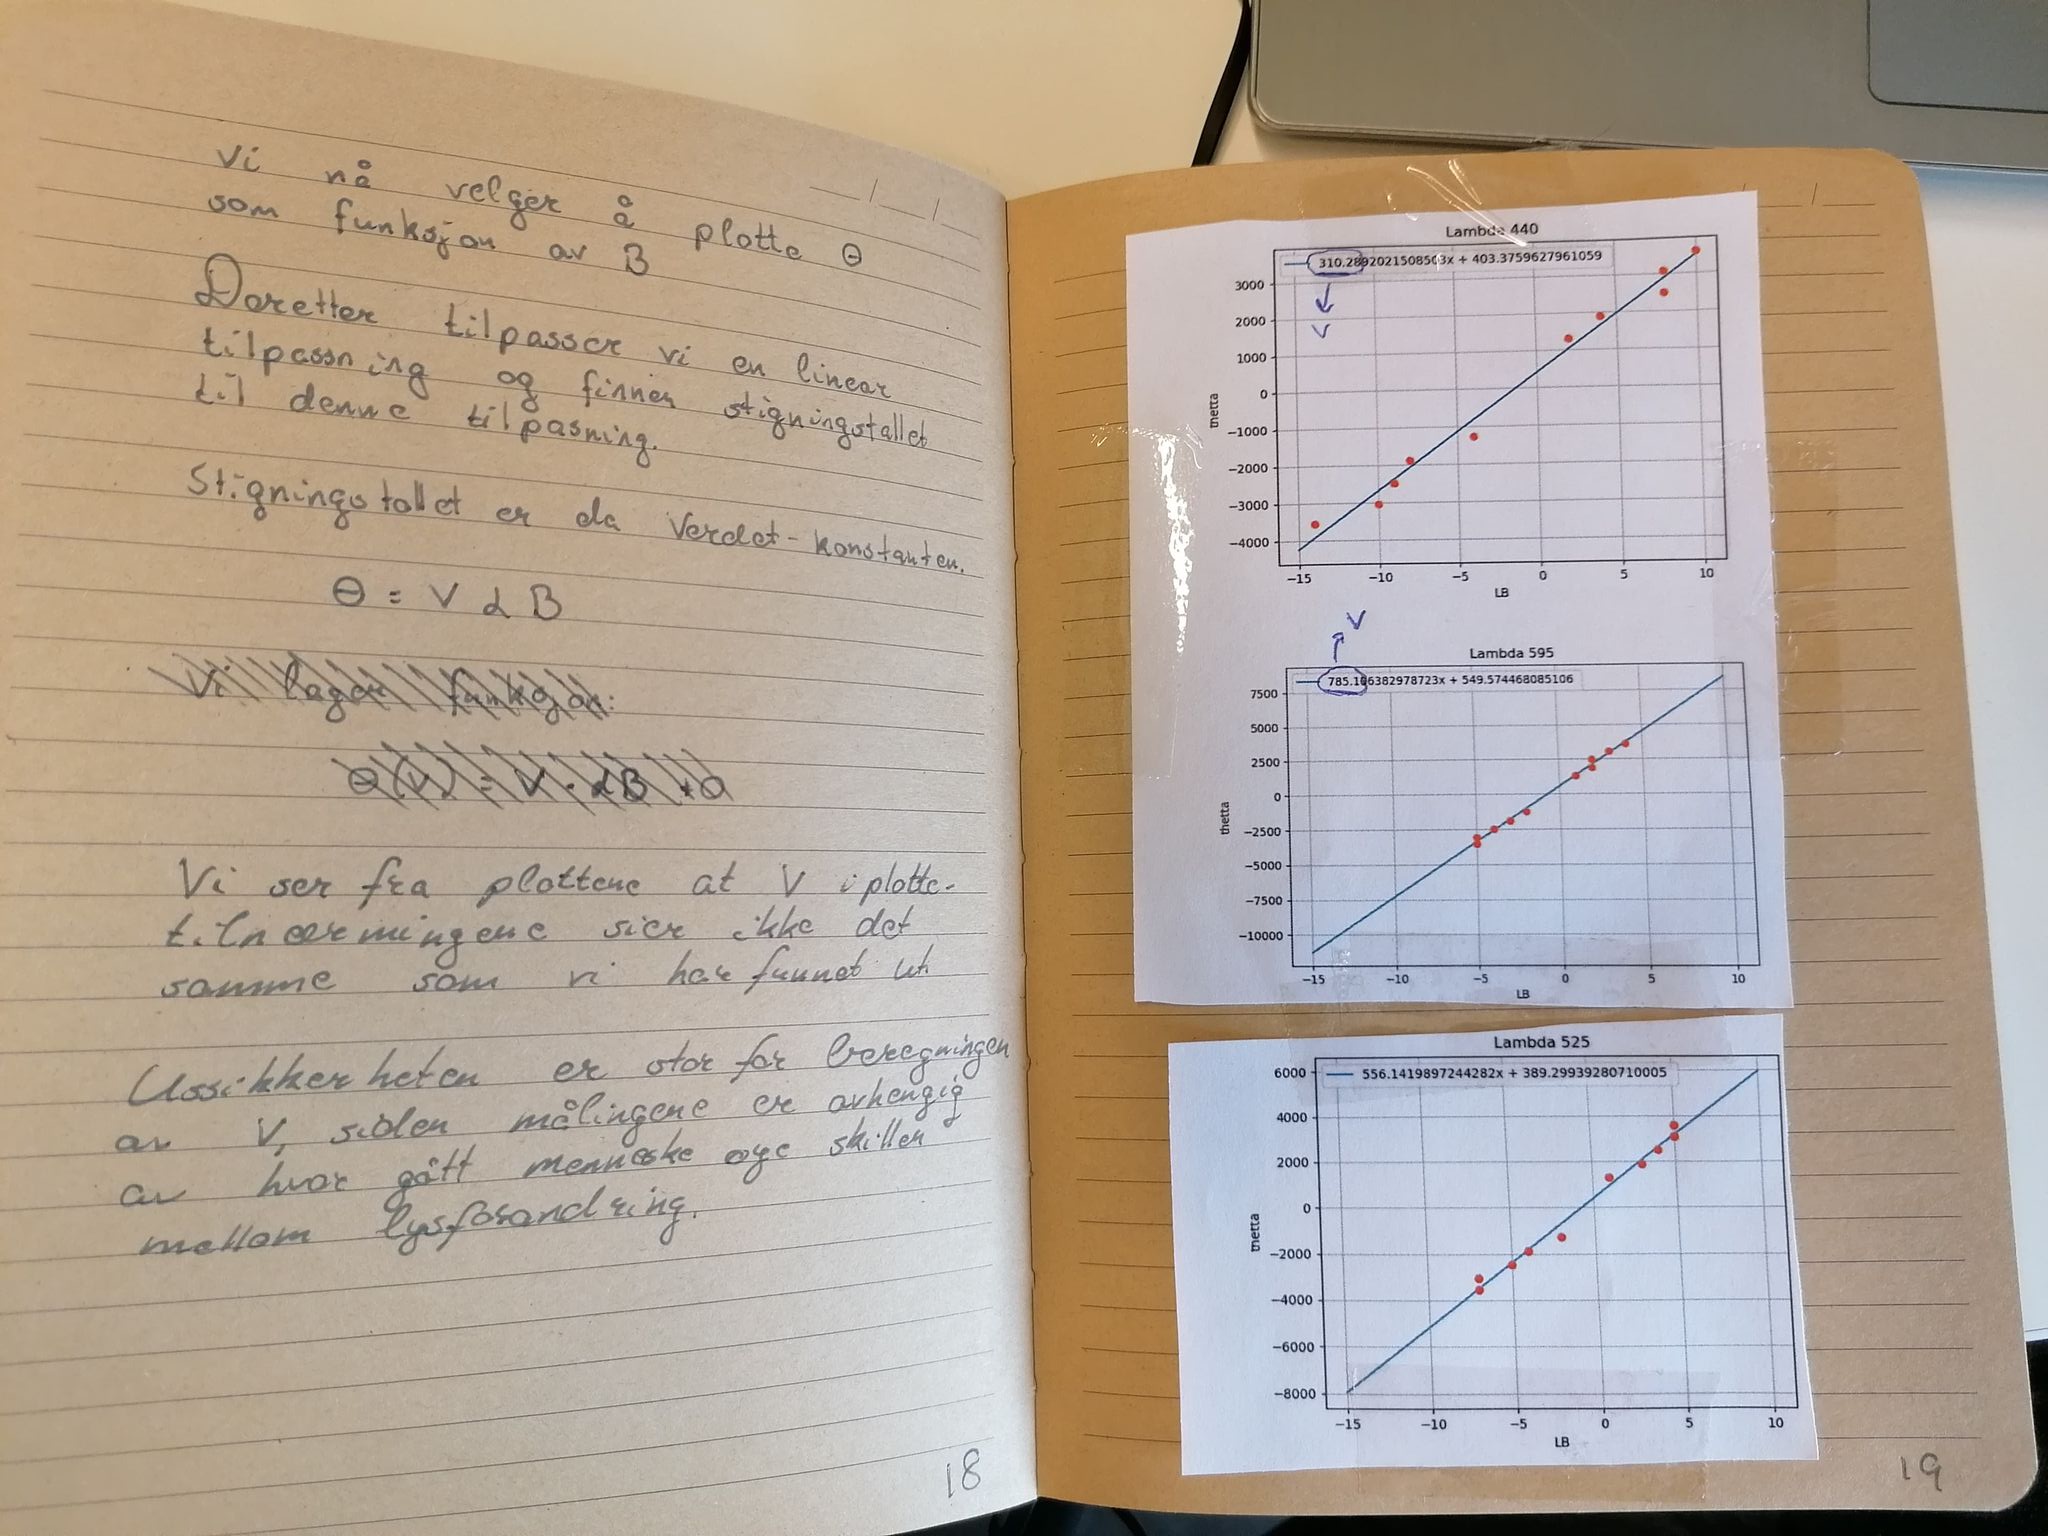 Vi nå velger å plotte Θ
som funksjon av B
Deretter tilpasser vi en linear
tilpassning og finner stigningstallet
til denne tilpasning.
Stigningstallet er da Verdet-konstanten.
Θ = V L B
Vi lager funksjon:
Θ(V) = V · LB + a
Vi ser fra plottene at V i plotte-
tilnærmingene sier ikke det
samme som vi har funnet ut
Ussikkerheten er stor for beregningen
av V, siden målingene er avhengig
av hvor gått menneske øye skiller
mellom lysforandring.
18
Lambda 440
310.2892021508503x + 403.3759627961059
V
3000
2000
1000
0
−1000
−2000
−3000
−4000
thetta
−15 −10 −5 0 5 10
LB
V
Lambda 595
785.106382978723x + 549.574468085106
7500
5000
2500
0
−2500
−5000
−7500
−10000
thetta
−15 −10 −5 0 5 10
LB
Lambda 525
556.1419897244282x + 389.29939280710005
6000
4000
2000
0
−2000
−4000
−6000
−8000
thetta
−15 −10 −5 0 5 10
LB
19